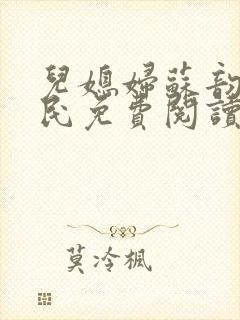 兒媳婦蘇韵
民免費閱讀
莫冷楓